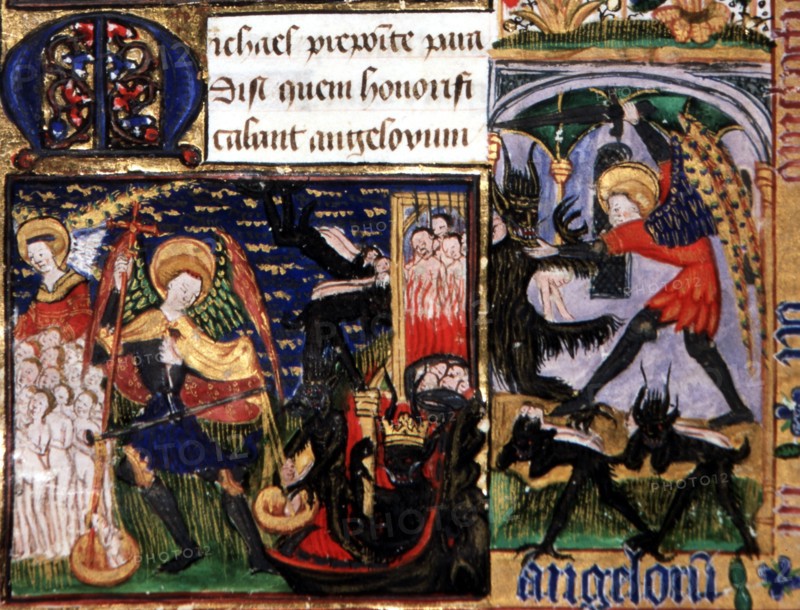 Michael prepoite para
Disi quem honorifi
cabant angelorum
angelorū